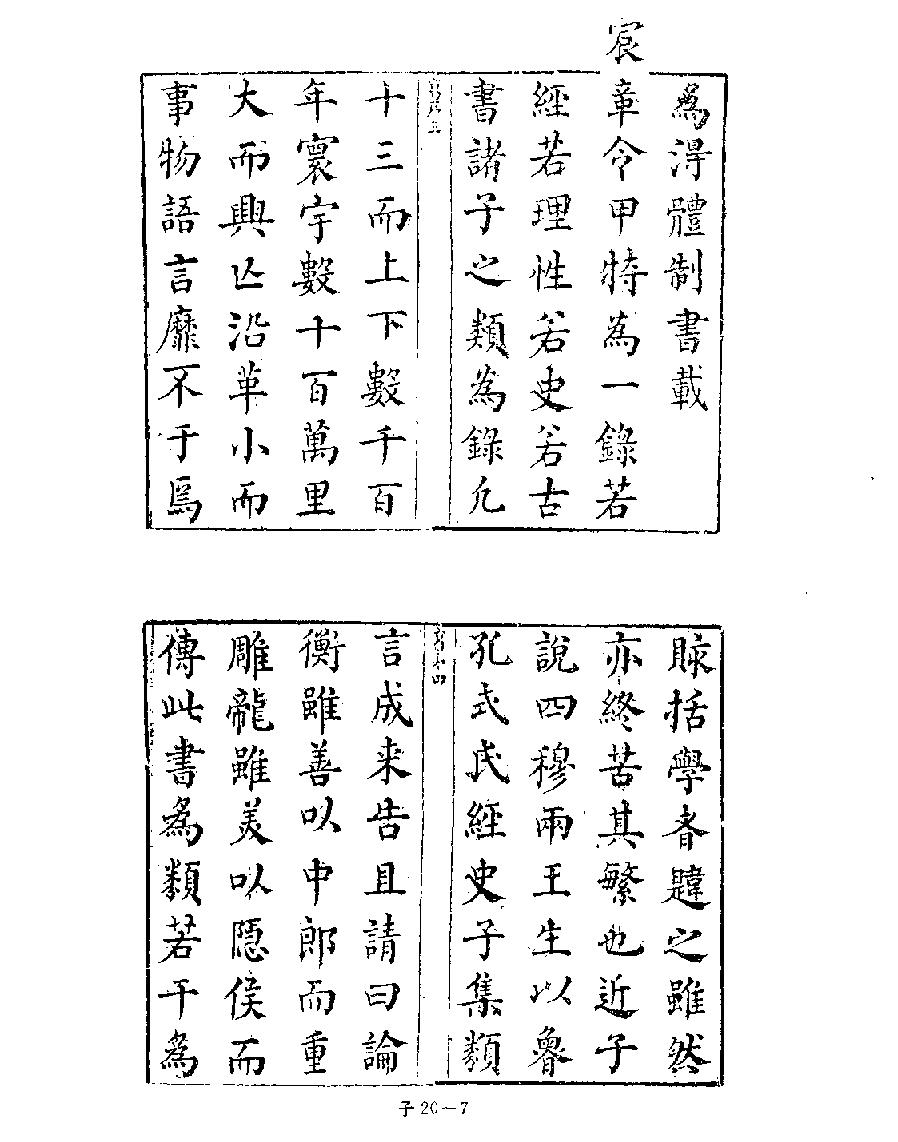 為淂體制書載
宸章令甲特為一錄若
經若理性若史若古
書諸子之類為錄凢
十三而上下數千百
年寰宇數十百萬里
大而興亾沿革小而
事物語言靡不于焉
賅括學者韙之雖然
亦終苦其繁也近子
說四穆兩王生以魯
孔式氏經史子集類
言成来告且請曰論
衡雖善以中郎而重
雕龍雖美以隱侯而
傳此書為類若干為
子20—7